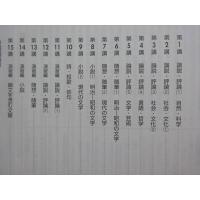 第1講 論説・評論① 自然・科学
第2講 論説・評論② 社会・文化①
第3講 論説・評論③ 社会・文化②
第4講 論説・評論④ 言語・哲学
第5講 論説・評論⑤ 文学・芸術
第6講 随想・随筆① 明治～昭和の文学
第7講 随想・随筆② 現代の文学
第8講 小説① 明治～昭和の文学
第9講 小説② 現代の文学
第10講 詩・短歌・俳句
第11講 演習編 論説・評論①
第12講 演習編 論説・評論②
第13講 演習編 随想・随筆
第14講 演習編 小説
第15講